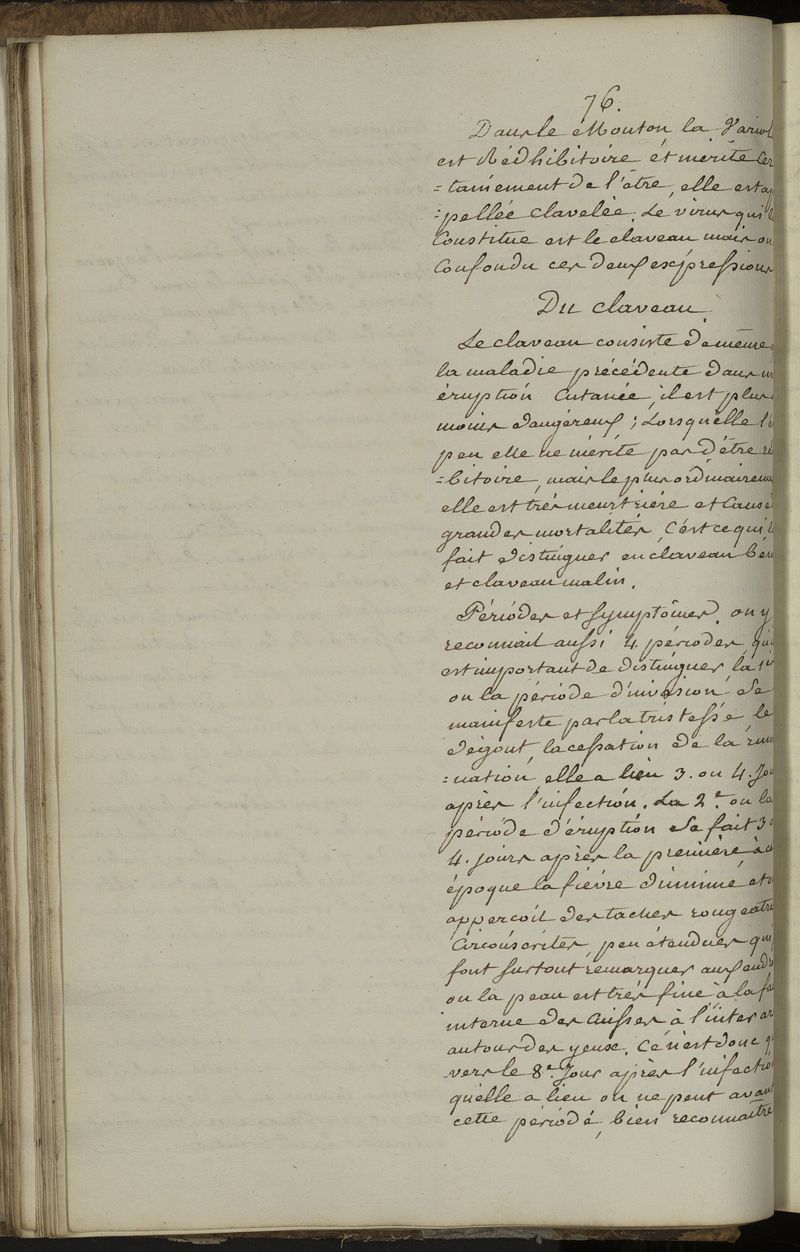 76.
Dans le Mouton la Variol
est Rédhibitoire et mérite Cer
=tainement de l'être, elle est ap
=pellée clavelée. Le virus qui la
Constitue est le claveau mais on
Confondu ces deux expressions
Du claveau.
Le claveau consiste de même
la maladie précédente dans un
éruption Cutanée, il est plus
moins dangéreux ; Lorsqu'elle l'
peu elle ne mérite pas d'être ré
=bitoire, mais le plus ordinairem
elle est très meurtrière et Cause
grandes mortalités, C'est ce qui l
fait distinguer en claveau bén
et claveau malin.
Périodes et symptômes. on y
reconnait aussi 4. périodes qu
est important de distinguer, la 1re
ou la période d'invasion Se
manifeste par la tristesse, le
dégout, la cessation de la rum
=nation, elle a lieu 3. ou 4. Jou
après l'infection. La 2e. ou la
période d'éruption Se fait 3
4. jours après la première, à c
époque la fièvre diminue, et
apperçoit des taches rougeatre
Circonscrites, peu étendues qui
font surtout remarquer aux endr
ou la peau est très fine à la fa
interne des Cuisses à l'inter ar
autour des yeux. Ce n'est donc q
vers le 8e. Jour après l'infectio
qu'elle a lieu on ne peut avant
cette période, bien reconnaitre